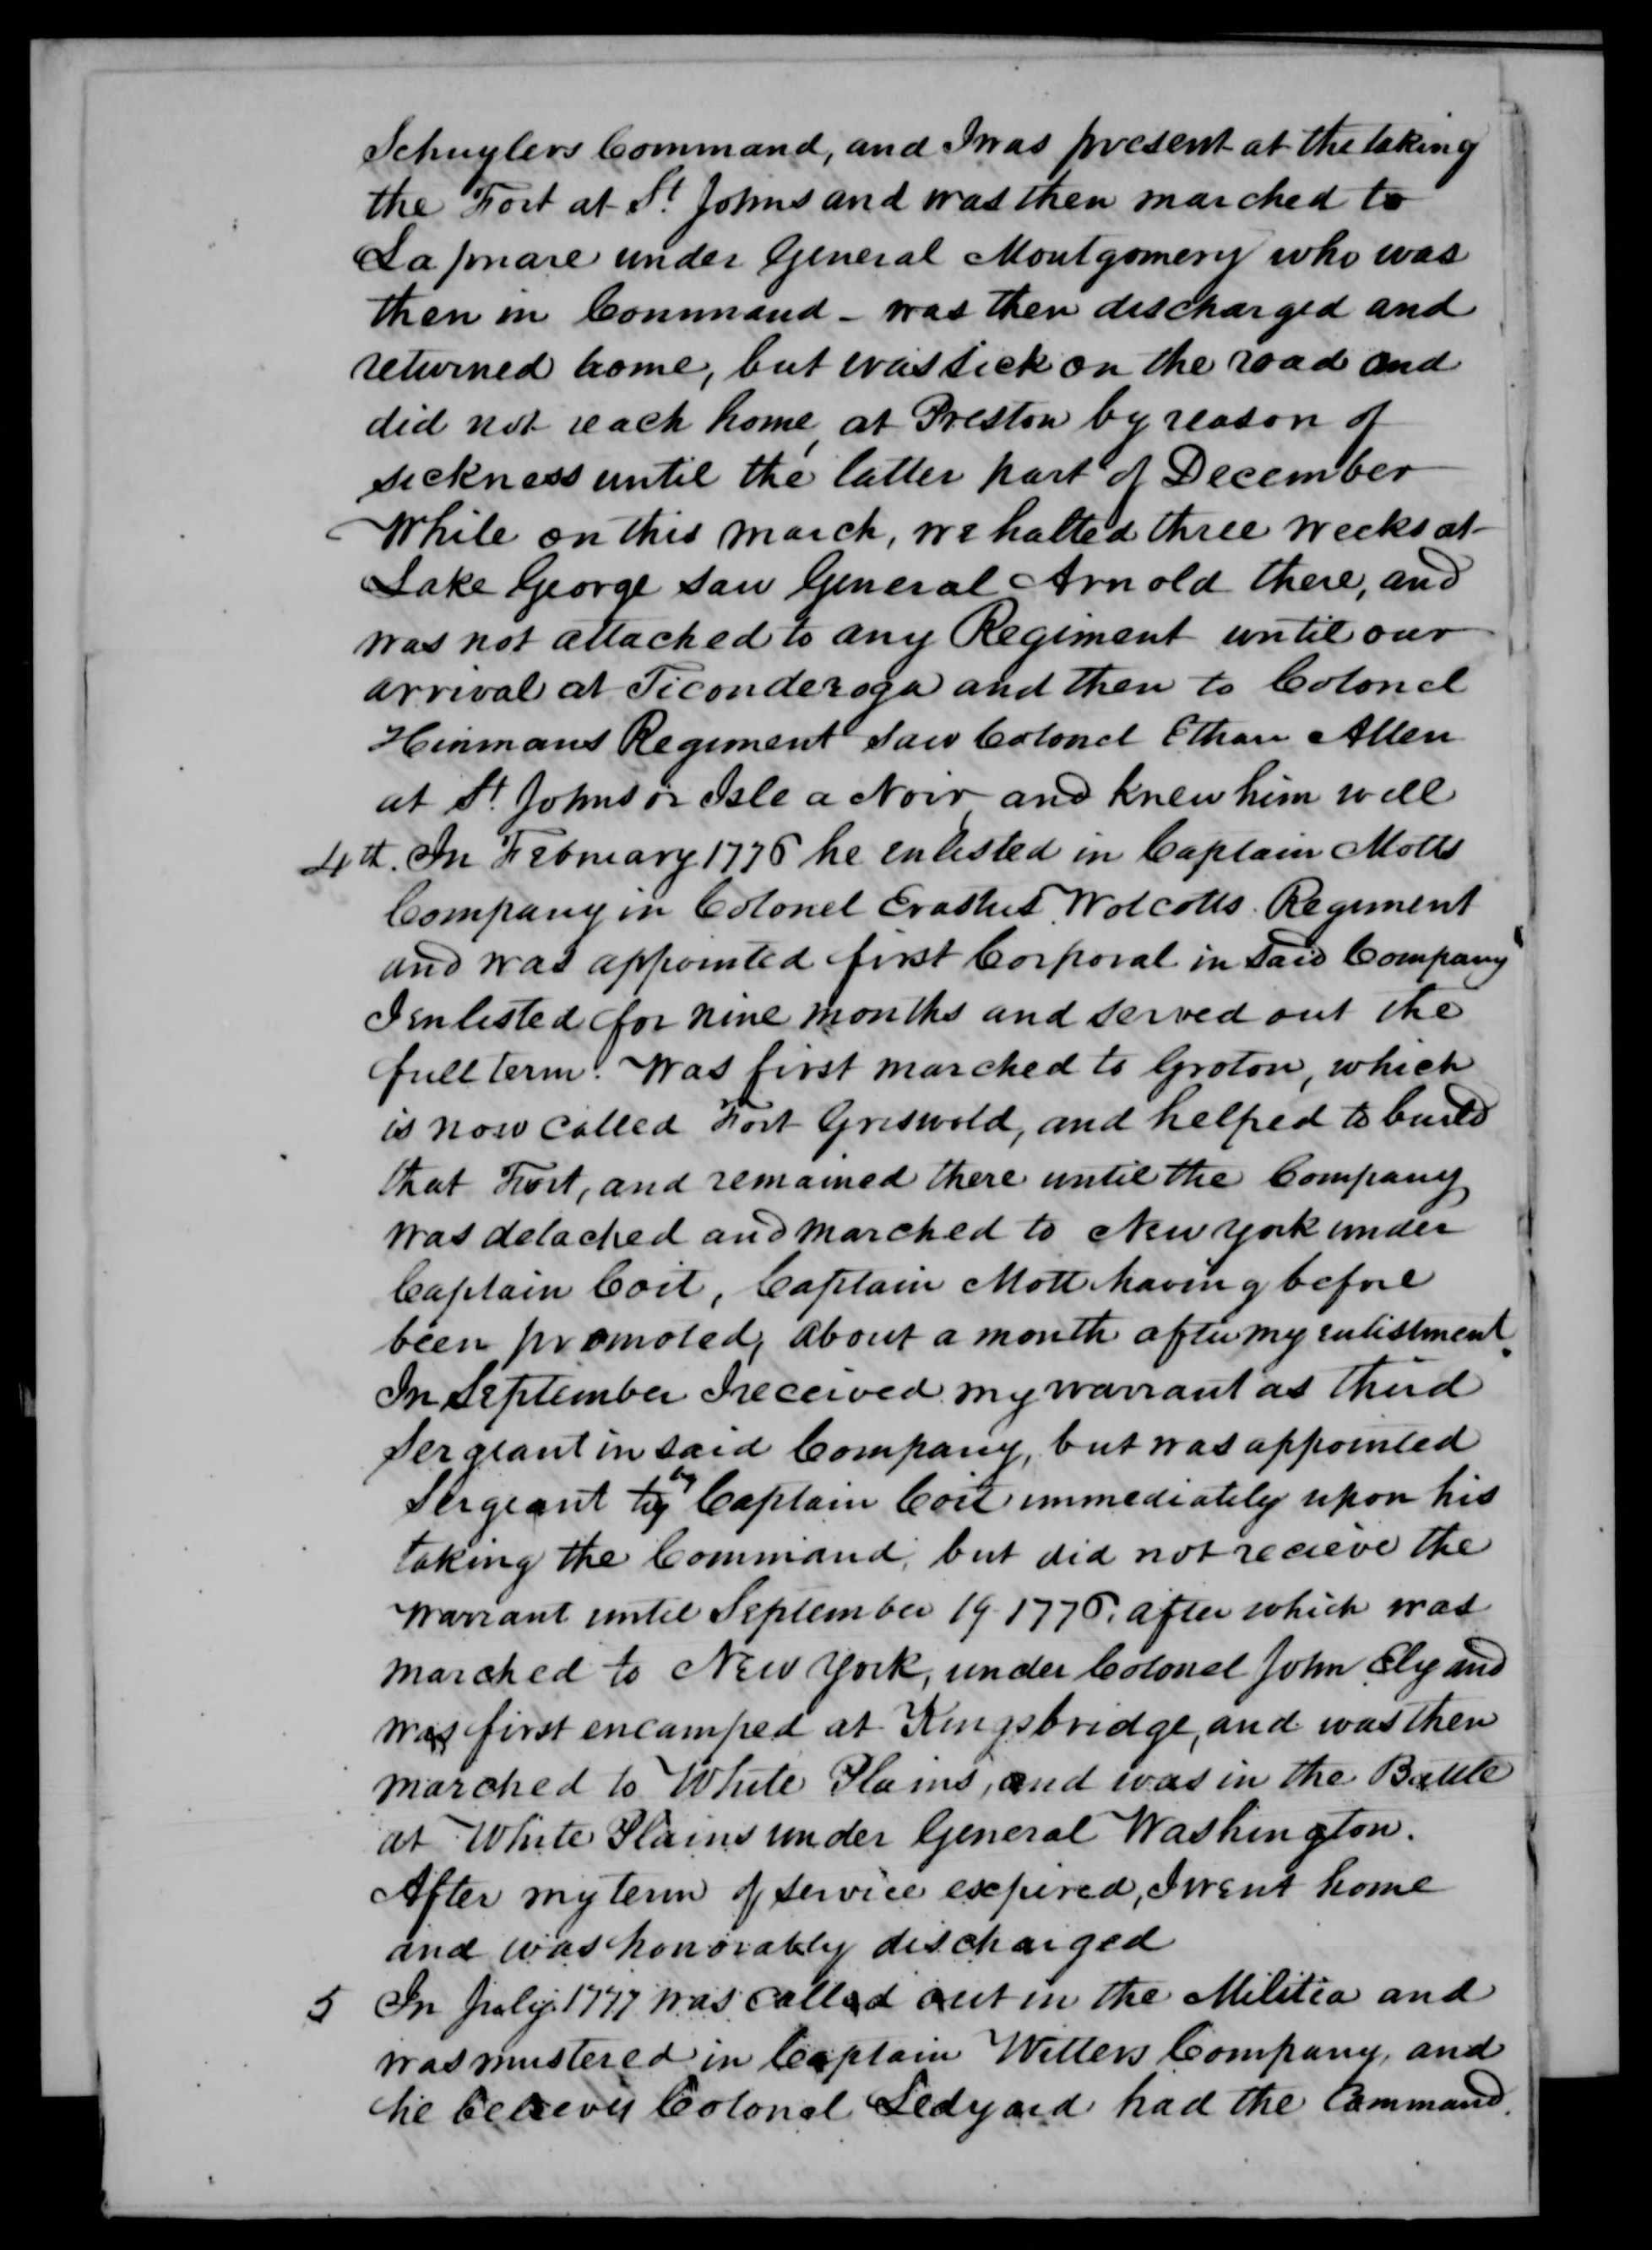 Schuylers Command, and I was present at the taking
the Fort at St Johns and was then marched to
Laprare under General Montgomery who was
then in Command - was then discharged and
returned home, but was sick on the road and
did not reach home, at Preston by reason of
sickness until the latter part of December
While on this march, we halted three weeks at
Lake George saw General Arnold there, and
was not attached to any Regiment until our
arrival at Ticonderoga and then to Colonel
Hinmans Regiment saw Colonel Ethan Allen
at St. Johns or Isle a Noir and knew him well
4th. In February 1776 he enlisted in Captain Motts
Company in Colonel Erastus Wolcotts Regiment
and was appointed first Corporal in said Company
I enlisted for nine months and served out the
full term. Was first marched to Groton, which
is now called Fort Griswold, and helped to build
that Fort, and remained there until the Company
was detached and marched to New York under
Captain Coit, Captain Mott having before
been promoted, about a month after my enlistment.
In September I received my warrant as third
Sergeant in said Company, but was appointed
Sergeant by by Captain Coit immediately upon his
taking the Command, but did not recieve the
warrant until September 19 1776. after which was
marched to New York, under Colonel John Ely and
was first encamped at Kingsbridge, and was then
marched to White Plains, and was in the Battle
at White Plains under General Washington.
After my term of service expired, I went home
and was honorably discharged
5 In July 1777 was called out in the Militia and
was mustered in Captain Witters Company, and
he believes Colonel Ledyard had the Command.